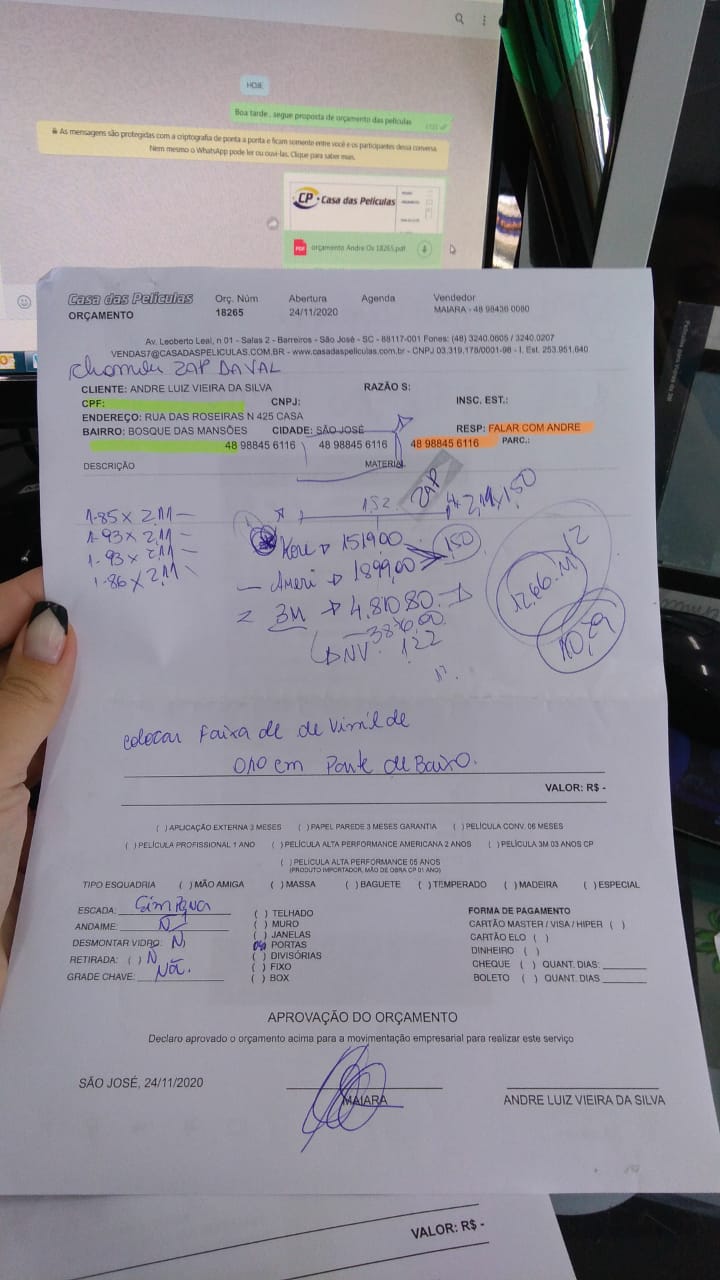 HOJE
Boa tarde , segue proposta de orçamento das películas
As mensagens são protegidas com a criptografia de ponta a ponta e ficam somente entre você e os participantes dessa conversa.
Nem mesmo o WhatsApp pode ler ou ouvi-las. Clique para saber mais.
CP Casa das Películas
PDF orçamento Andre Ov 18265.pdf
Casa das Películas Orç. Núm Abertura Agenda Vendedor
ORÇAMENTO 18265 24/11/2020 MAIARA - 48 98436 0080
Av. Leoberto Leal, n 01 - Salas 2 - Barreiros - São José - SC - 88117-001 Fones: (48) 3240.0605 / 3240.0207
VENDAS7@CASADASPELICULAS.COM.BR - www.casadaspeliculas.com.br - CNPJ 03.319.178/0001-98 - I. Est. 253.951.640
ZAP
CLIENTE: ANDRE LUIZ VIEIRA DA SILVA RAZÃO S:
CPF: CNPJ: INSC. EST.:
ENDEREÇO: RUA DAS ROSEIRAS N 425 CASA
BAIRRO: BOSQUE DAS MANSÕES CIDADE: SÃO JOSÉ RESP: FALAR COM ANDRE
48 98845 6116 48 98845 6116 48 98845 6116 PARC.:
DESCRIÇÃO MATERIAL
ZAP
1.52
1.85 x 2,11
1.93 x 2,11
1.93 x 2,11
1.86 x 2,11
1519,00
150
1899,00
3M 4.810,80
122
12,66
10,29
colocar faixa de de Vinil de
0,10 cm Parte de Baixo.
VALOR: R$ -
( ) APLICAÇÃO EXTERNA 3 MESES ( ) PAPEL PAREDE 3 MESES GARANTIA ( ) PELÍCULA CONV. 06 MESES
( ) PELÍCULA PROFISSIONAL 1 ANO ( ) PELÍCULA ALTA PERFORMANCE AMERICANA 2 ANOS ( ) PELÍCULA 3M 03 ANOS CP
( ) PELÍCULA ALTA PERFORMANCE 05 ANOS
(PRODUTO IMPORTADOR, MÃO DE OBRA CP 01 ANO)
TIPO ESQUADRIA ( ) MÃO AMIGA ( ) MASSA ( ) BAGUETE ( ) TEMPERADO ( ) MADEIRA ( ) ESPECIAL
ESCADA:
ANDAIME: N
DESMONTAR VIDRO: N
RETIRADA: ( ) N
GRADE CHAVE: Não.
( ) TELHADO
( ) MURO
( ) JANELAS
PORTAS
( ) DIVISÓRIAS
( ) FIXO
( ) BOX
FORMA DE PAGAMENTO
CARTÃO MASTER / VISA / HIPER ( )
CARTÃO ELO ( )
DINHEIRO ( )
CHEQUE ( ) QUANT. DIAS:
BOLETO ( ) QUANT. DIAS
APROVAÇÃO DO ORÇAMENTO
Declaro aprovado o orçamento acima para a movimentação empresarial para realizar este serviço
SÃO JOSÉ, 24/11/2020
MAIARA
ANDRE LUIZ VIEIRA DA SILVA
VALOR: R$ -